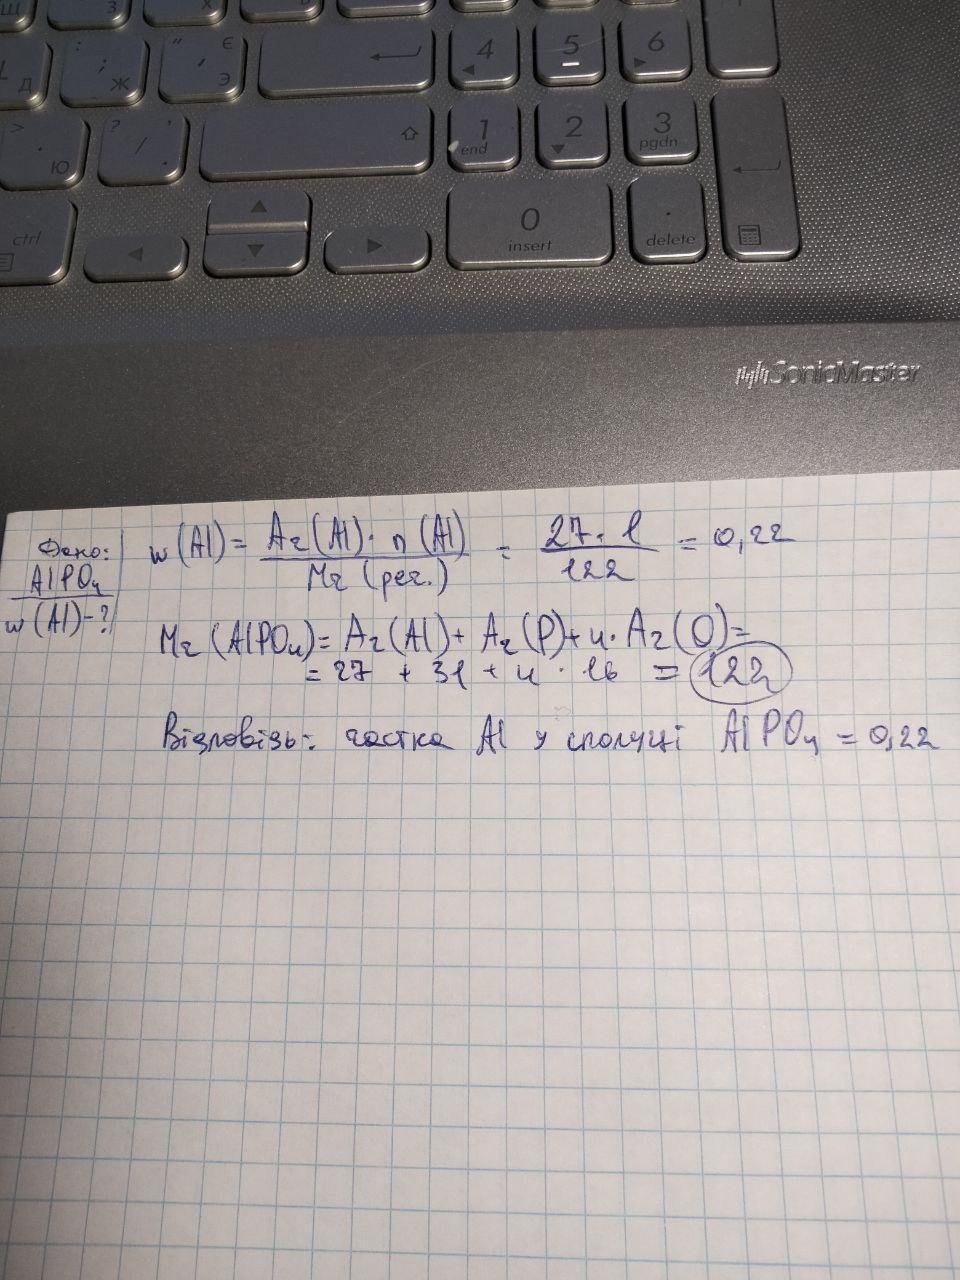 Щ З Х Ъ
Д : ; Ж " ' Є Э 4 5 6
> . Ю ? / , . 1 end 2 3 pgdn
ctrl 0 insert . delete
SonicMaster
Дано:
AlPO₄
w(Al)-?
w(Al) = Ar(Al)·n(Al) / Mr(реч.) = 27·1 / 122 = 0,22
Mr(AlPO₄) = Ar(Al) + Ar(P) + 4·Ar(O) =
= 27 + 31 + 4 · 16 = 122
Відповідь: частка Al у сполуці AlPO₄ = 0,22